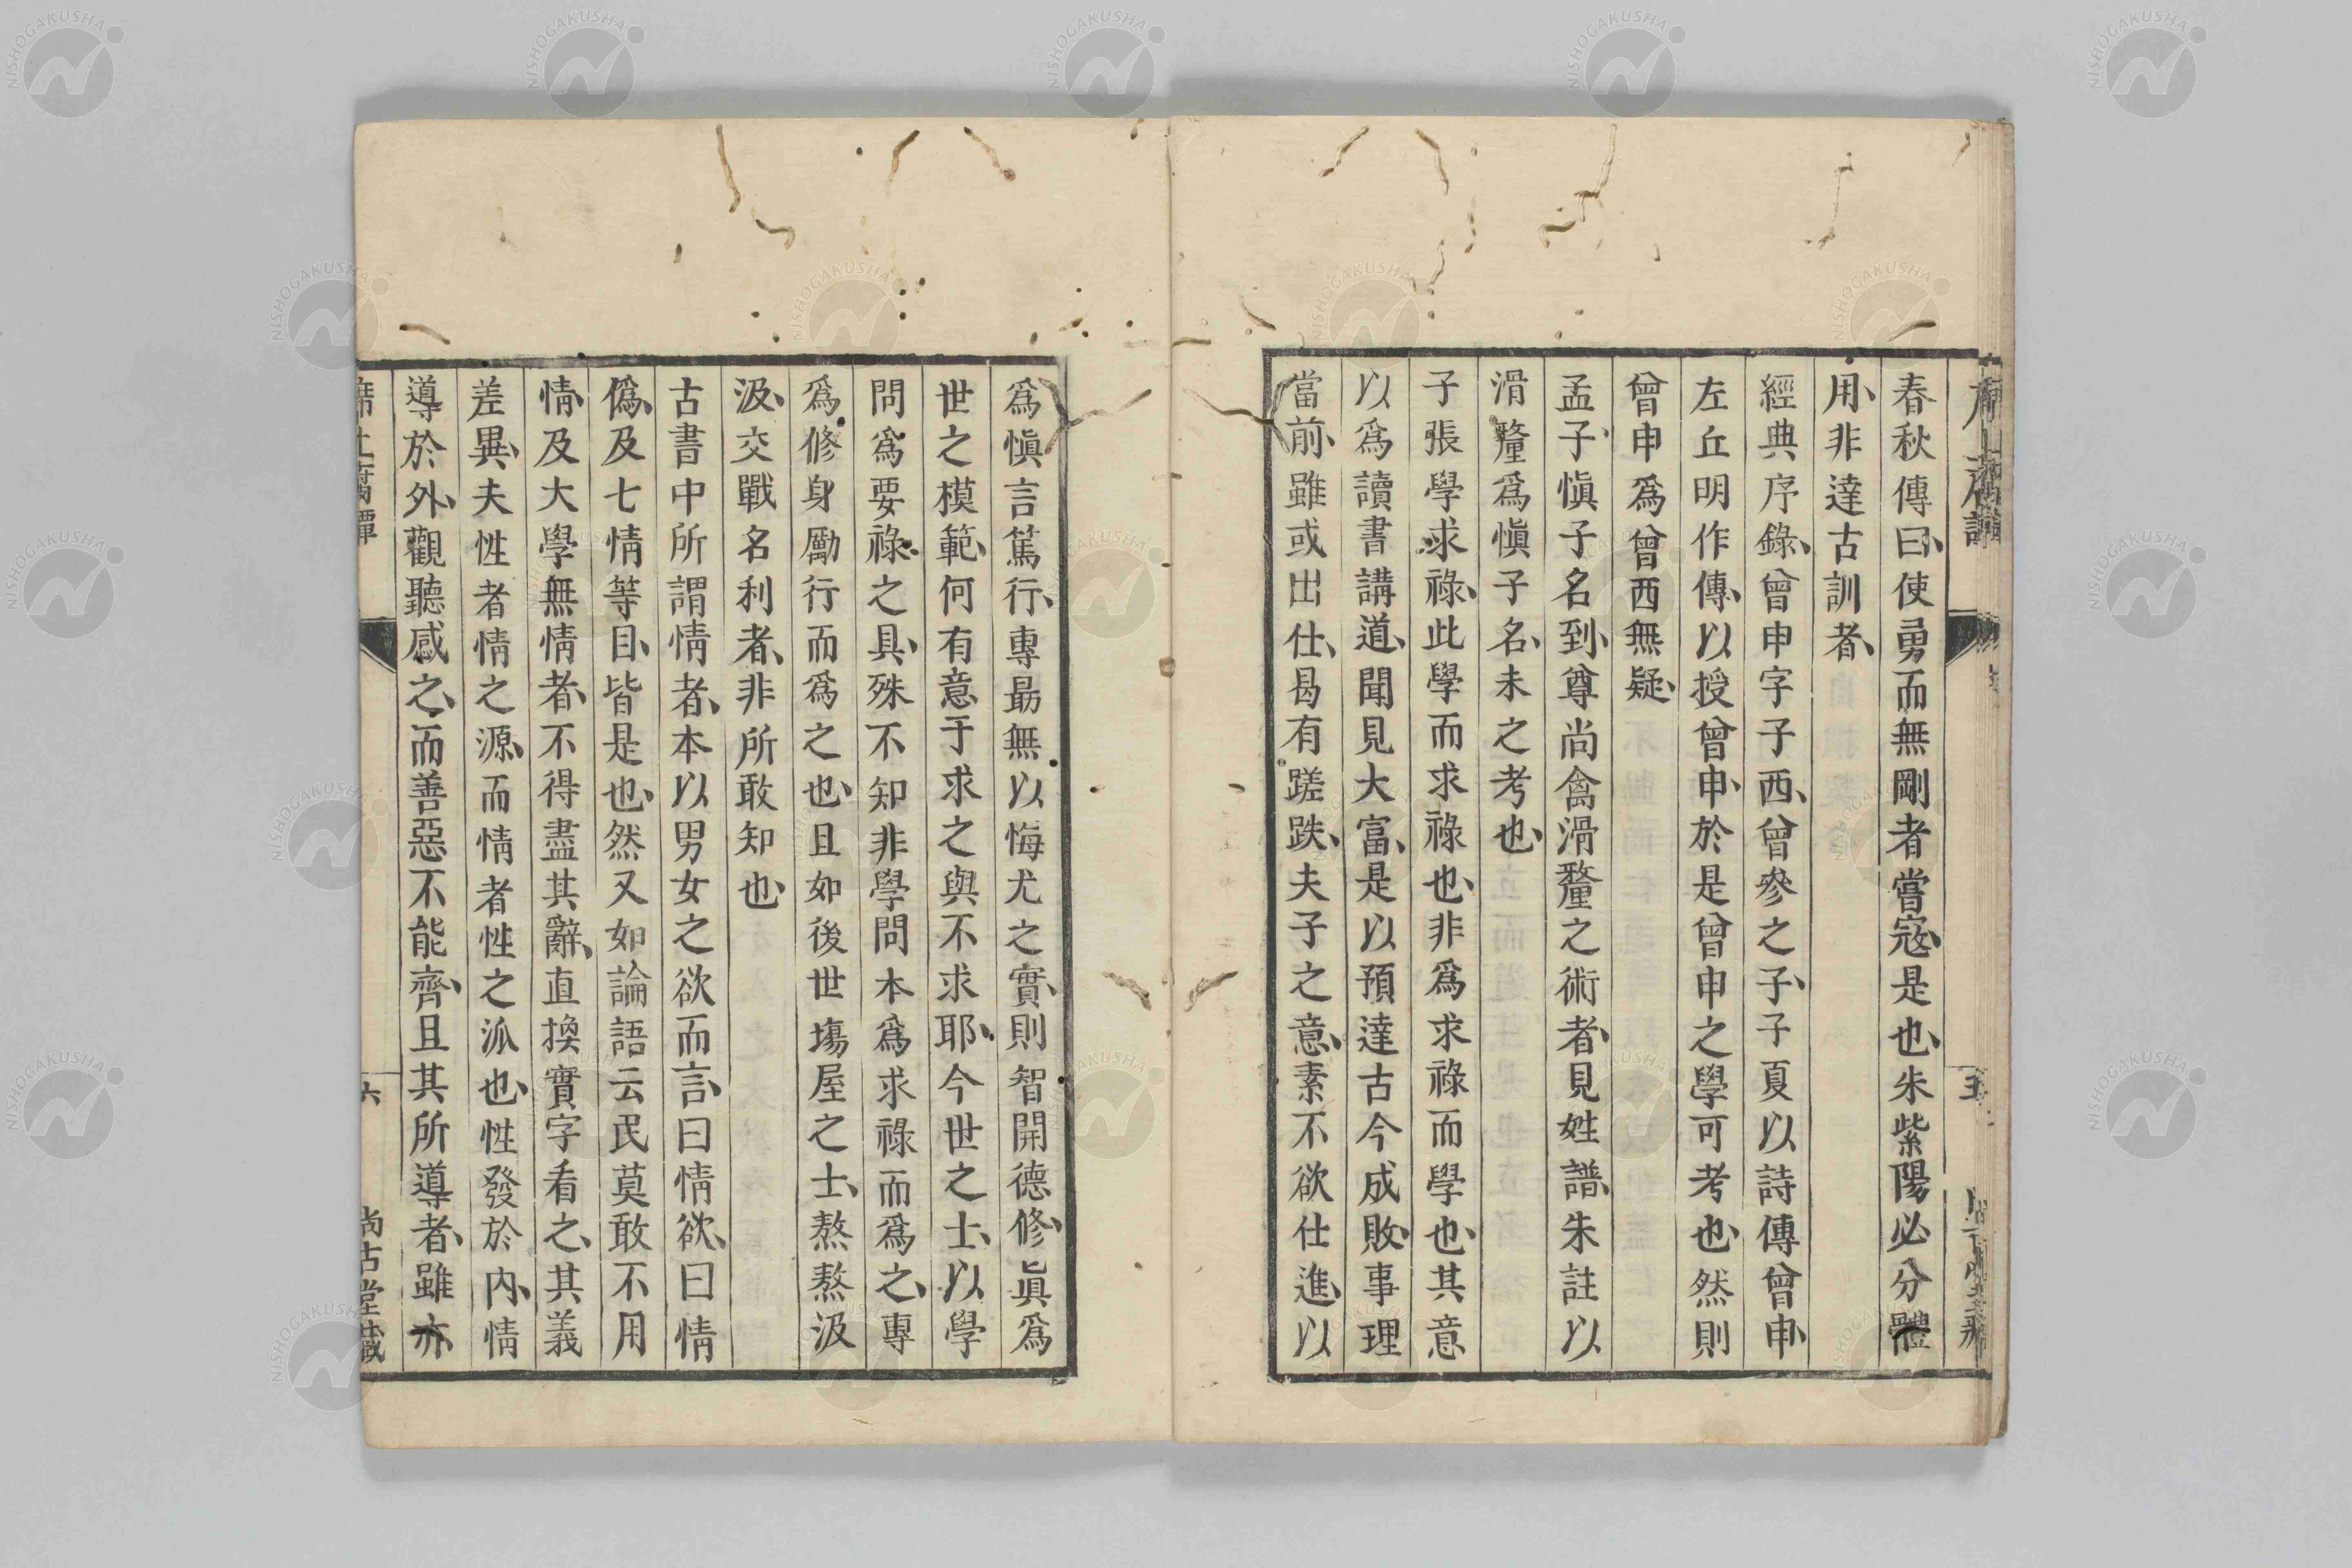 春秋傳曰、使勇而無剛者嘗寇、是也、朱紫陽必分體
用、非達古訓者、
經典序錄、曾申字子西、曾參之子、子夏以詩傳曾申、
左丘明作傳、以授曾申、於是曾申之學可考也、然則
曾申爲曾西無疑、
孟子、愼子名到、尊尚禽滑釐之術者、見姓譜、朱註以
滑釐爲愼子名、未之考也、
子張學求祿、此學而求祿也、非爲求祿而學也、其意
以爲讀書講道、聞見大富、是以預達古今成敗、事理
當前、雖或出仕、曷有蹉跌、夫子之意、素不欲仕進、以
爲愼言篤行、專勗無以悔尤之實、則智開德修、眞爲
世之模範、何有意于求之與不求耶、今世之士、以學
問爲要祿之具、殊不知非學問本爲求祿而爲之、專
爲修身勵行而爲之也、且如後世塲屋之士、熬熬汲
汲、交戰名利者、非所敢知也、
古書中所謂情者、本以男女之欲而言、曰情欲、曰情
僞、及七情等目、皆是也、然又如論語云民莫敢不用
情、及大學無情者、不得盡其辭、直換實字看之、其義
差異、夫性者情之源、而情者性之派也、性發於內、情
導於外、觀聽感之、而善惡不能齊、且其所導者、雖亦
六
尚古堂藏